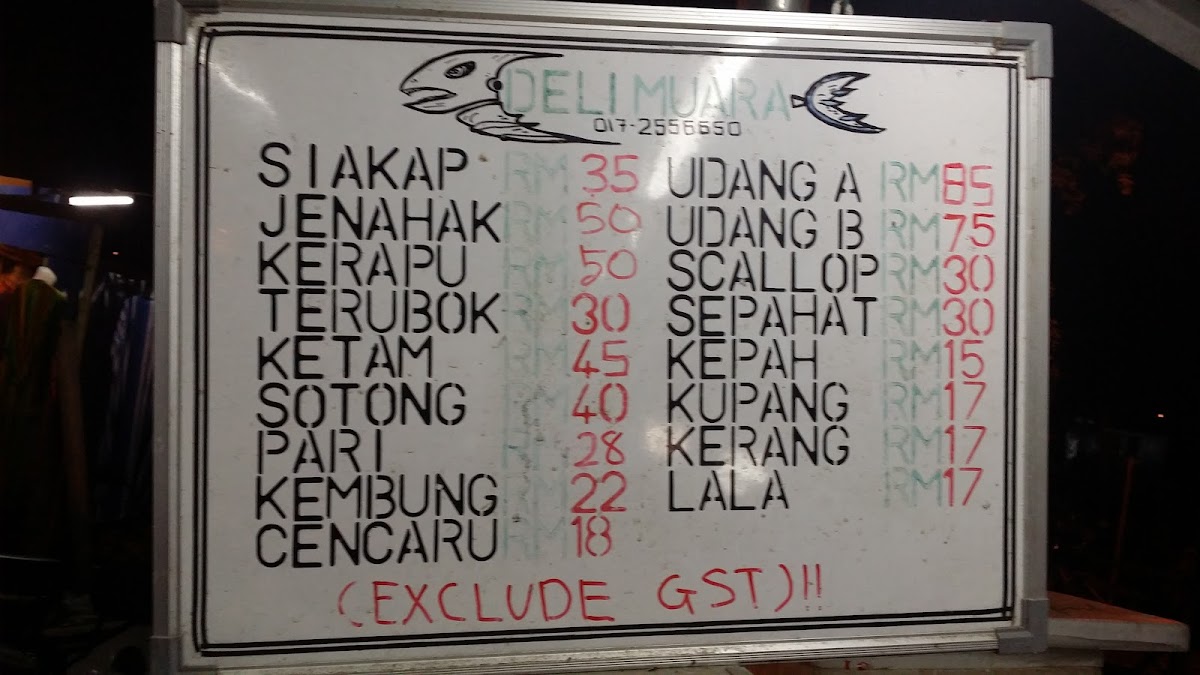 DELI MUARA
017-2556650
SIAKAP RM 35
JENAHAK RM 50
KERAPU RM 50
TERUBOK RM 30
KETAM RM 45
SOTONG RM 40
PARI RM 28
KEMBUNG RM 22
CENCARU RM 18
UDANG A RM 85
UDANG B RM 75
SCALLOP RM 30
SEPAHAT RM 30
KEPAH RM 15
KUPANG RM 17
KERANG RM 17
LALA RM 17
(EXCLUDE GST)!!